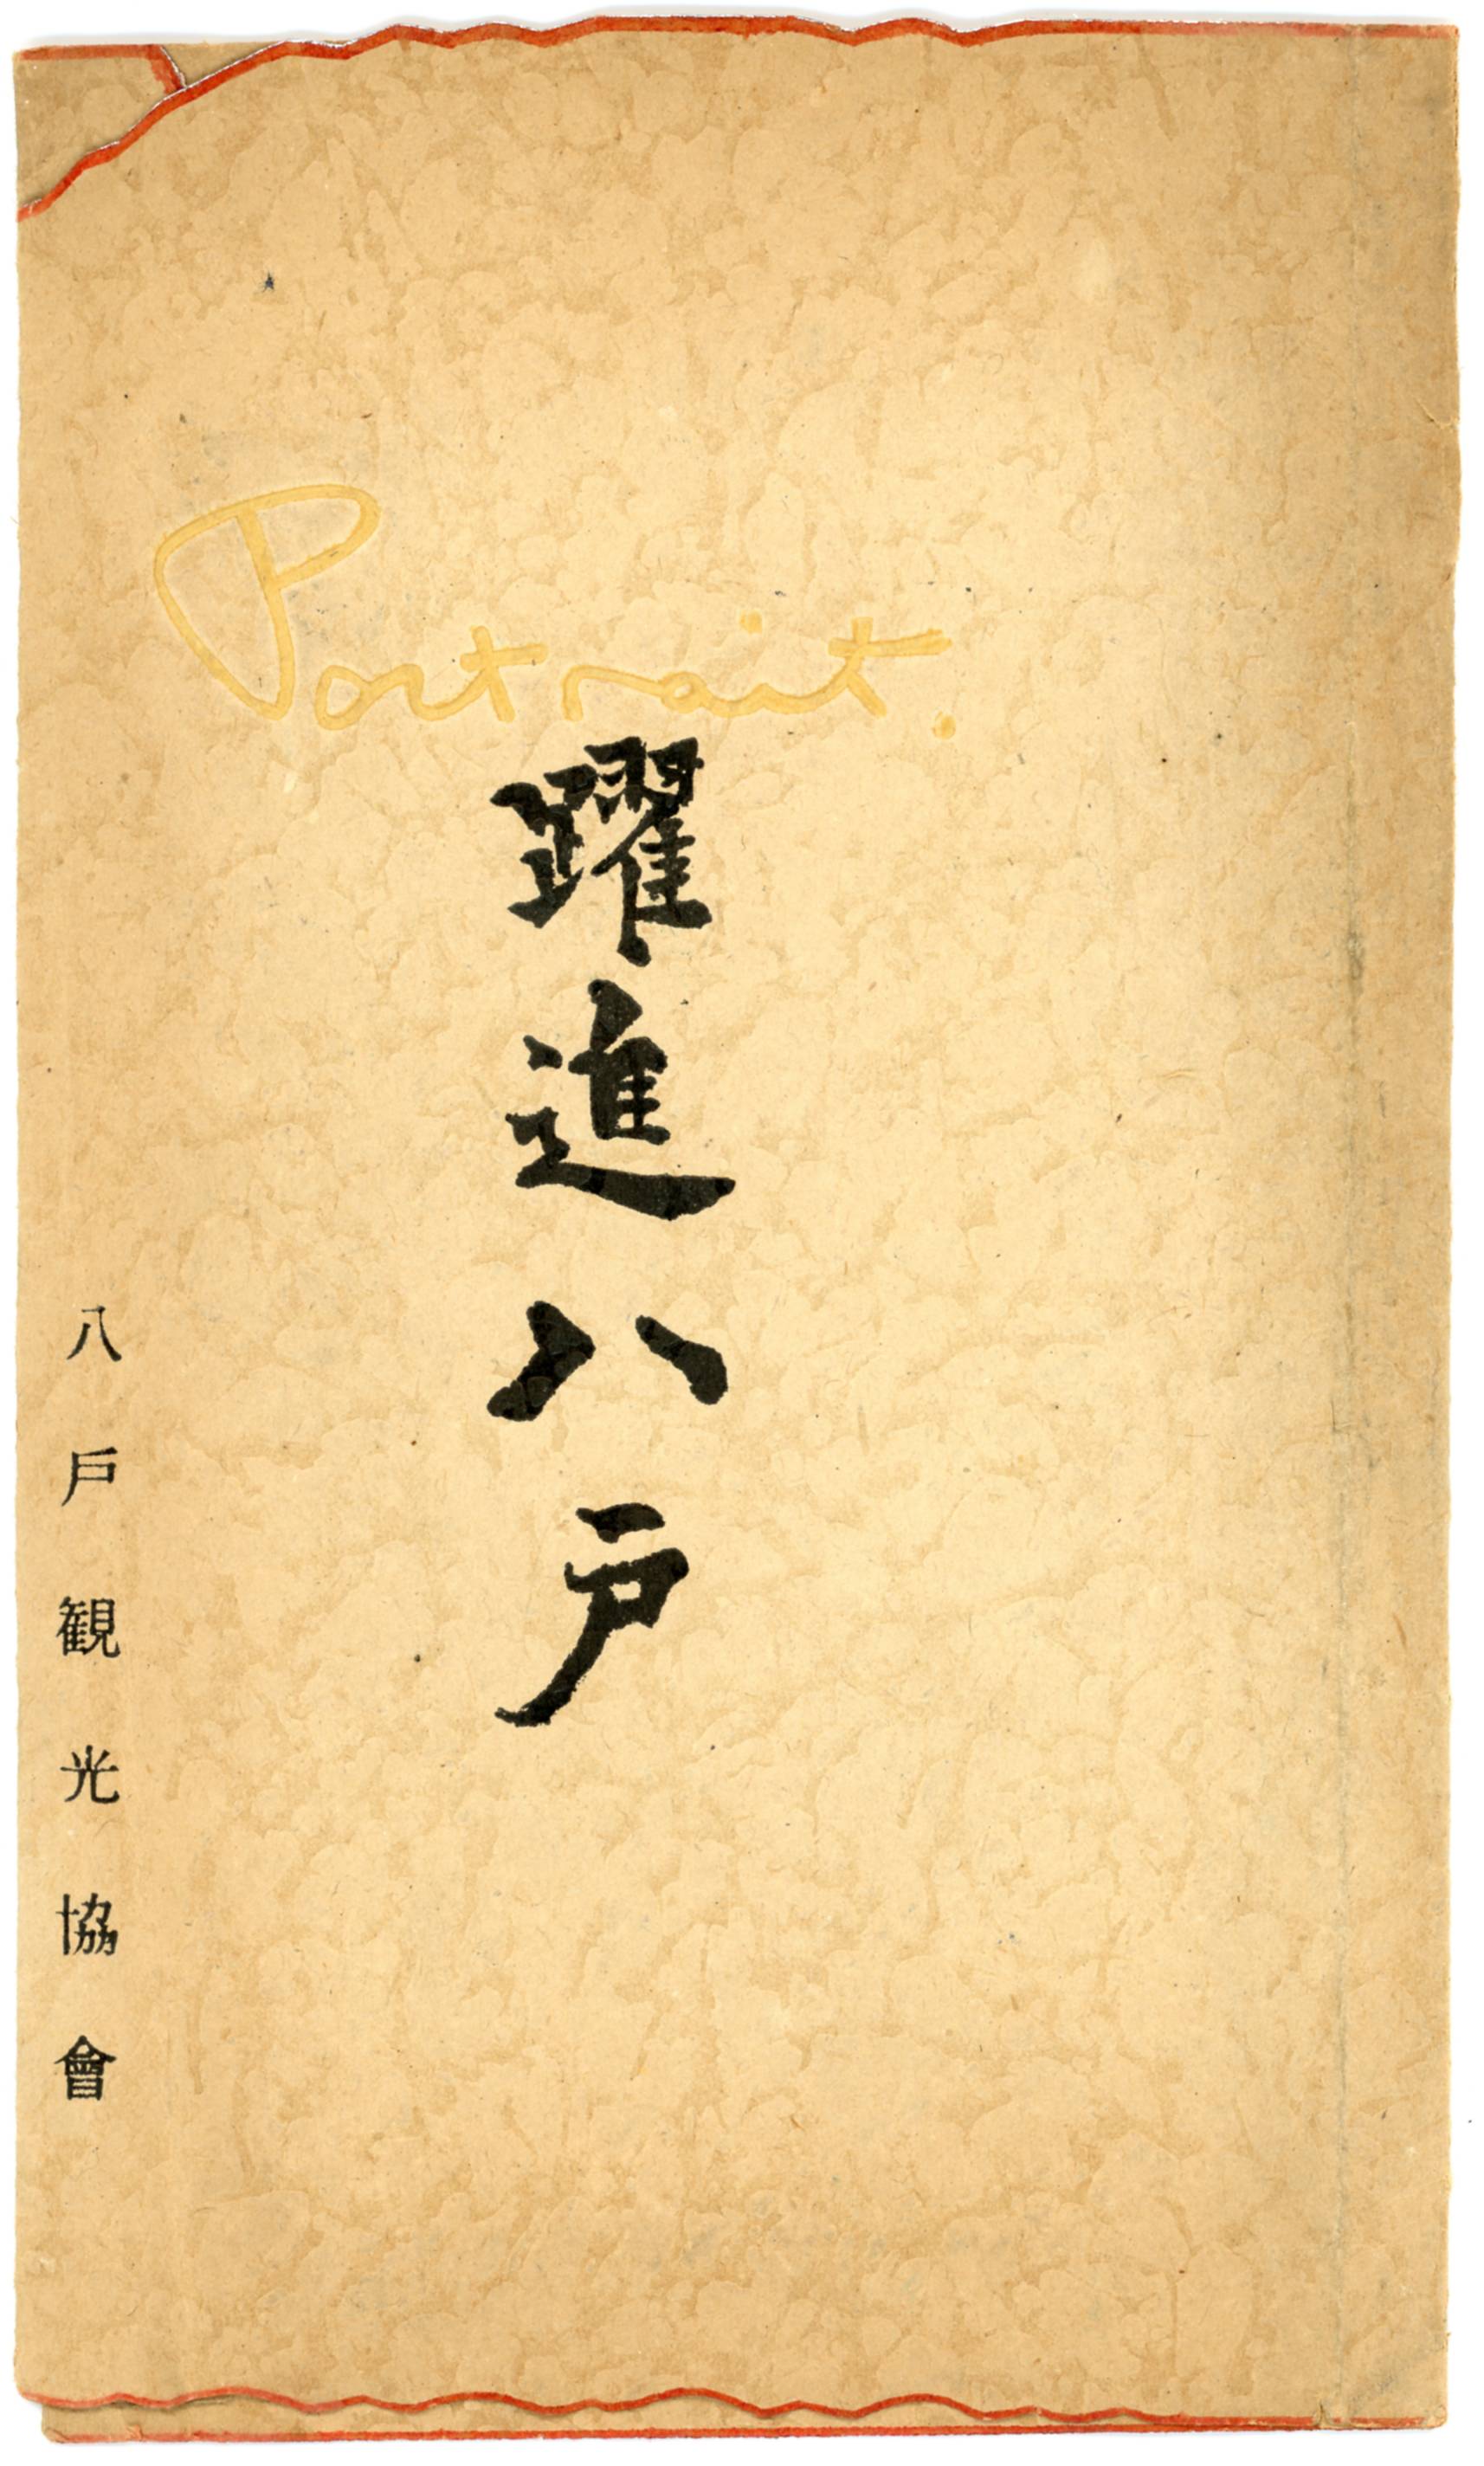 Portrait.
躍進八戸
八戸観光協會